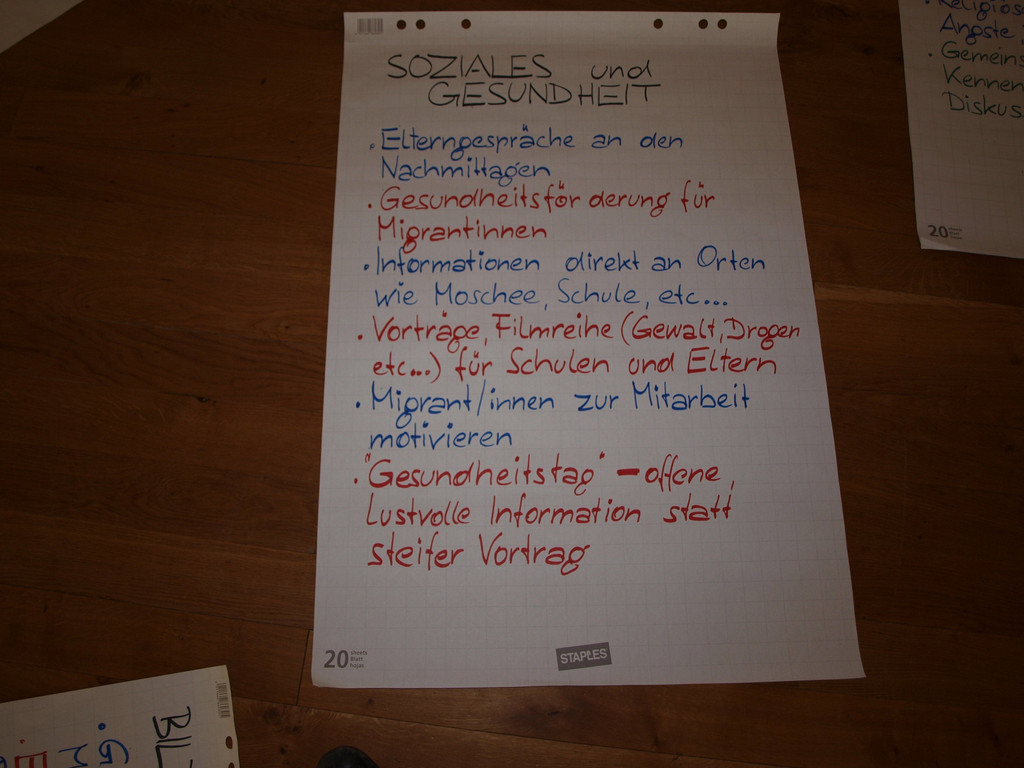 SOZIALES und
GESUNDHEIT
. Elterngespräche an den
Nachmittagen
. Gesundheitsförderung für
Migrantinnen
. Informationen direkt an Orten
wie Moschee, Schule, etc...
. Vorträge, Filmreihe (Gewalt, Drogen
etc...) für Schulen und Eltern
. Migrant/innen zur Mitarbeit
motivieren
. "Gesundheitstag" – offene,
lustvolle Information statt
steifer Vortrag
20 sheets
Blatt
hojas
STAPLES
Ängste
. Gemeins
Kennen
Diskus
20
BIL